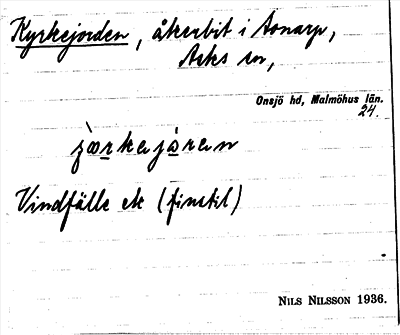 Kyrkejorden, åkerbit i Aonarp,
Asks sn,
Onsjö hd, Malmöhus län.
24.
Vindfälle ek (finstil)
NILS NILSSON 1936.